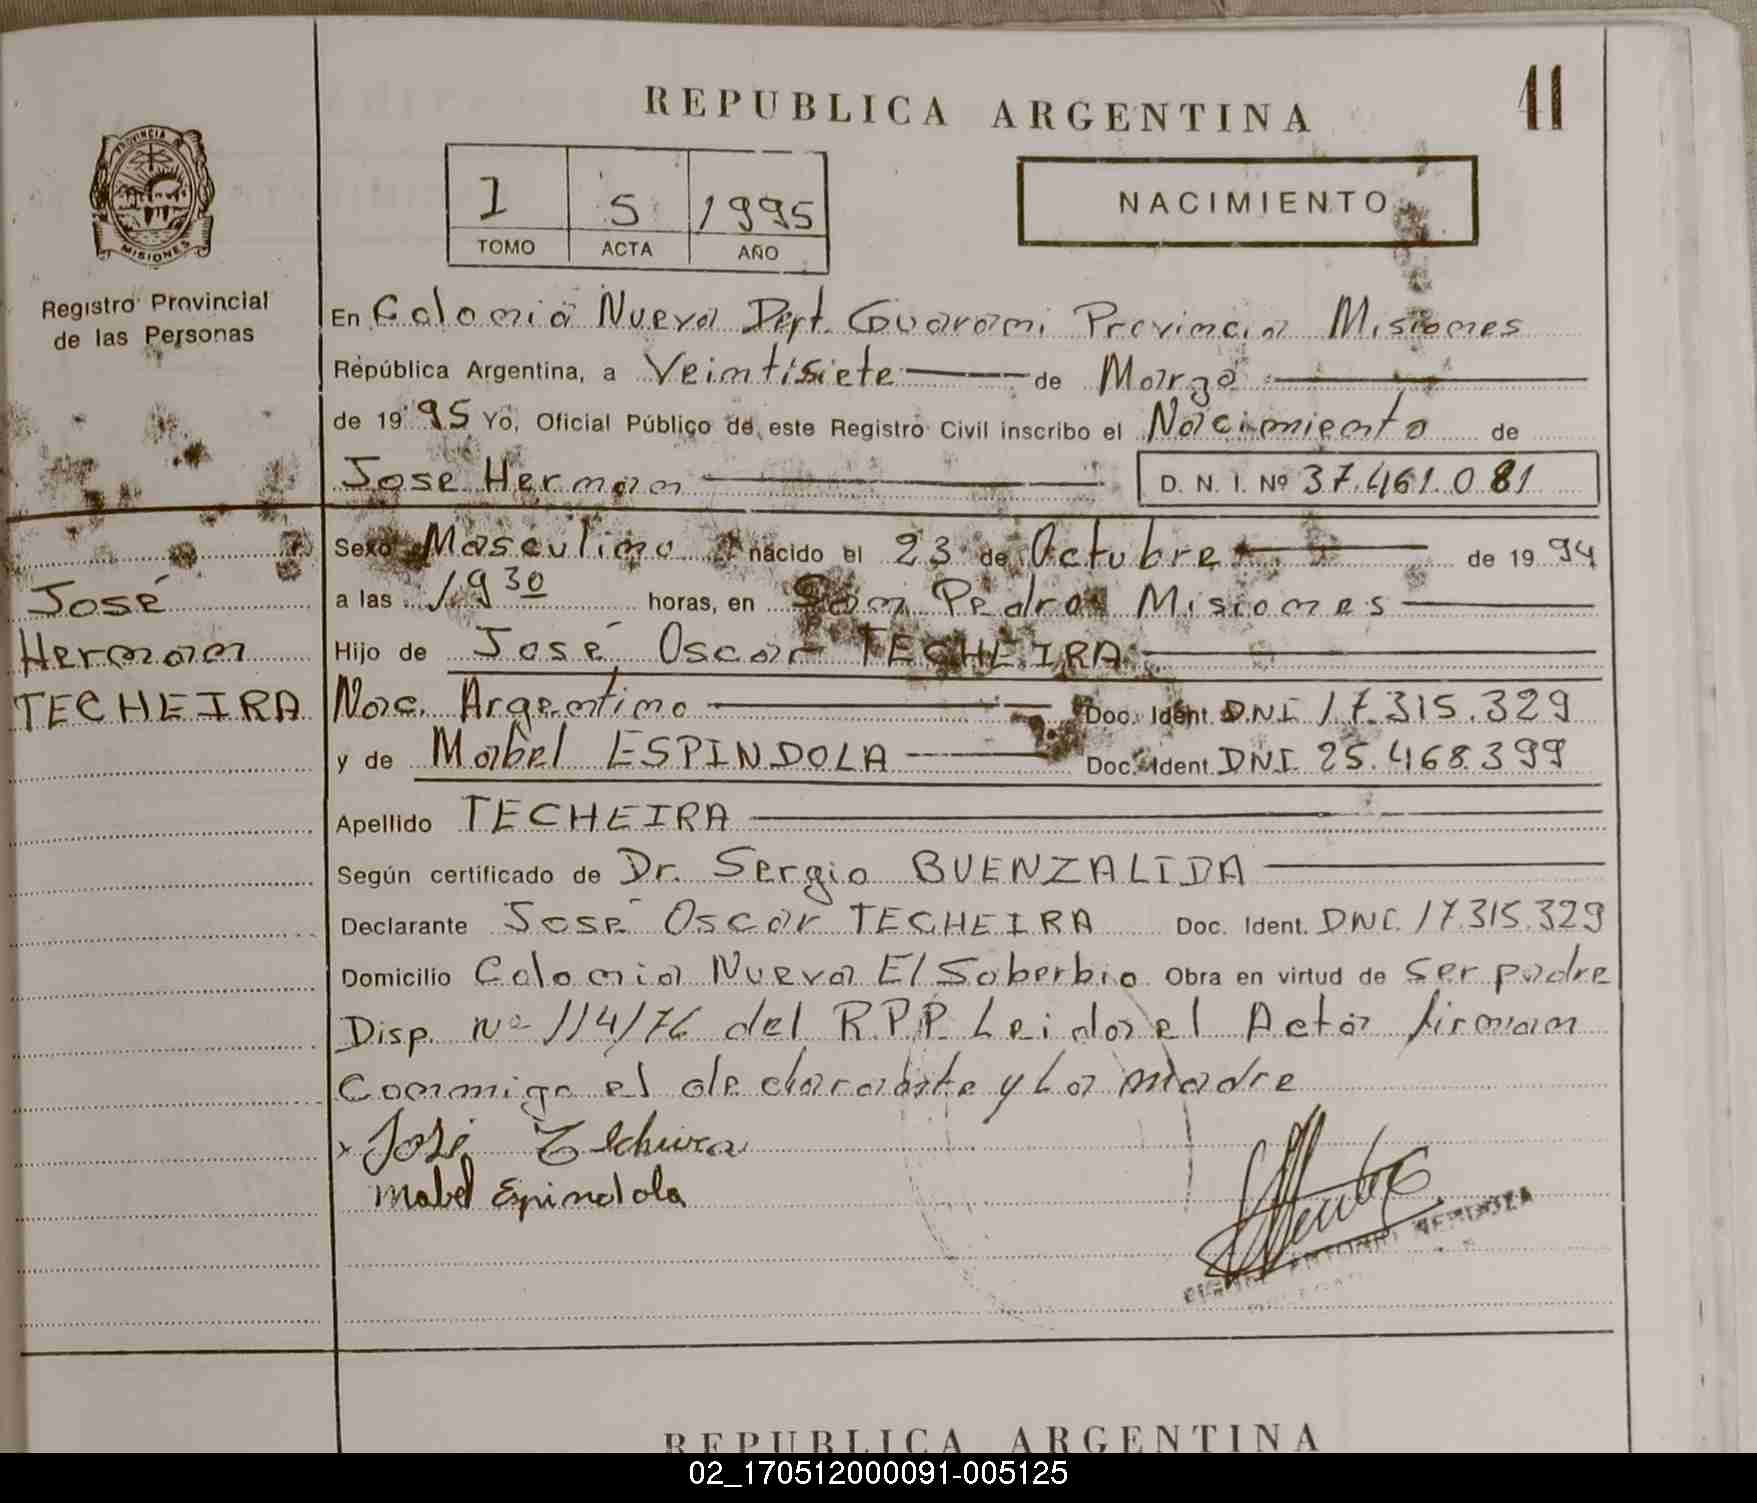 REPUBLICA ARGENTINA
41
PROVINCIA
MISIONES
Registro Provincial
de las Personas
I 5 1995
TOMO ACTA AÑO
NACIMIENTO
En Colonia Nueva Dept. Guarani Provincia Misiones
República Argentina, a Veintisiete de Marzo
de 1995 Yo, Oficial Público de este Registro Civil inscribo el Nacimiento de
Jose Hernan D. N. I. Nº 37.461.081
Sexo Masculino nacido el 23 de Octubre de 1994
a las 19 30 horas, en San Pedro Misiones
Hijo de José Oscar TECHEIRA
Nac. Argentino Doc. Ident. DNI 17.315.329
y de Mabel ESPINDOLA Doc. Ident. DNI. 25.468.399
José
Hernan
TECHEIRA
Apellido TECHEIRA
Según certificado de Dr. Sergio BUENZALIDA
Declarante José Oscar TECHEIRA Doc. Ident. DNI. 17.315.329
Domicilio Colonia Nueva El Soberbio Obra en virtud de ser padre
Disp. Nº 114/76 del R.P.P. Leida el Acta firman
Conmigo el declarante y La madre
x José Techeira
Mabel Espindola
ANTONIO MENDOZA
REPUBLICA ARGENTINA
02_170512000091-005125